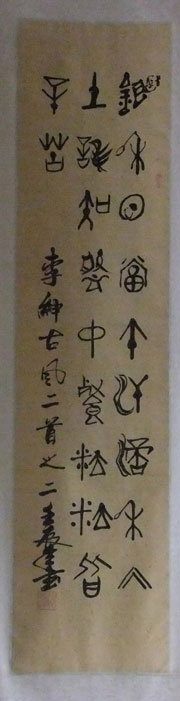 鋤禾日當午汗滴禾下
土誰知盤中餐粒粒皆
辛苦
李紳古風二首之二
壬辰